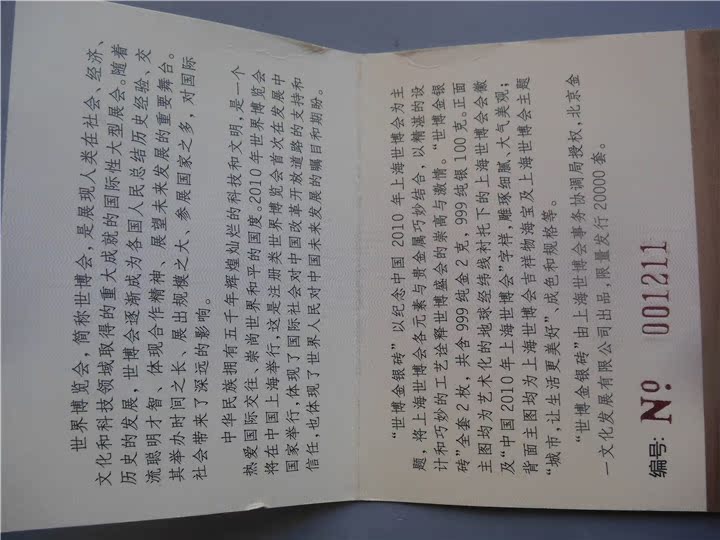 世界博览会，简称世博会，是展现人类在社会、经济、
文化和科技领域取得的重大成就的国际性大型展会。随着
历史的发展，世博会逐渐成为各国人民总结历史经验、交
流聪明才智、体现合作精神、展望未来发展的重要舞台。
其举办时间之长、展出规模之大、参展国家之多，对国际
社会带来了深远的影响。
中华民族拥有五千年辉煌灿烂的科技和文明，是一个
热爱国际交往、崇尚世界和平的国度。2010年世界博览会
将在中国上海举行，这是注册类世界博览会首次在发展中
国家举行，体现了国际社会对中国改革开放道路的支持和
信任，也体现了世界人民对中国未来发展的瞩目和期盼。
“世博金银砖”以纪念中国2010年上海世博会为主
题，将上海世博会各元素与贵金属巧妙结合，以精湛的设
计和巧妙的工艺诠释世博盛会的崇高与激情。“世博金银
砖”全套2枚，共含999纯金2克，999纯银100克。正面
主图均为艺术化的地球经纬线衬托下的上海世博会会徽
及“中国2010年上海世博会”字样，雕琢细腻，大气美观；
背面主图均为上海世博会吉祥物海宝及上海世博会主题
“城市，让生活更美好”、成色和规格等。
“世博金银砖”由上海世博会事务协调局授权，北京金
一文化发展有限公司出品，限量发行20000套。
编号：No. 001211